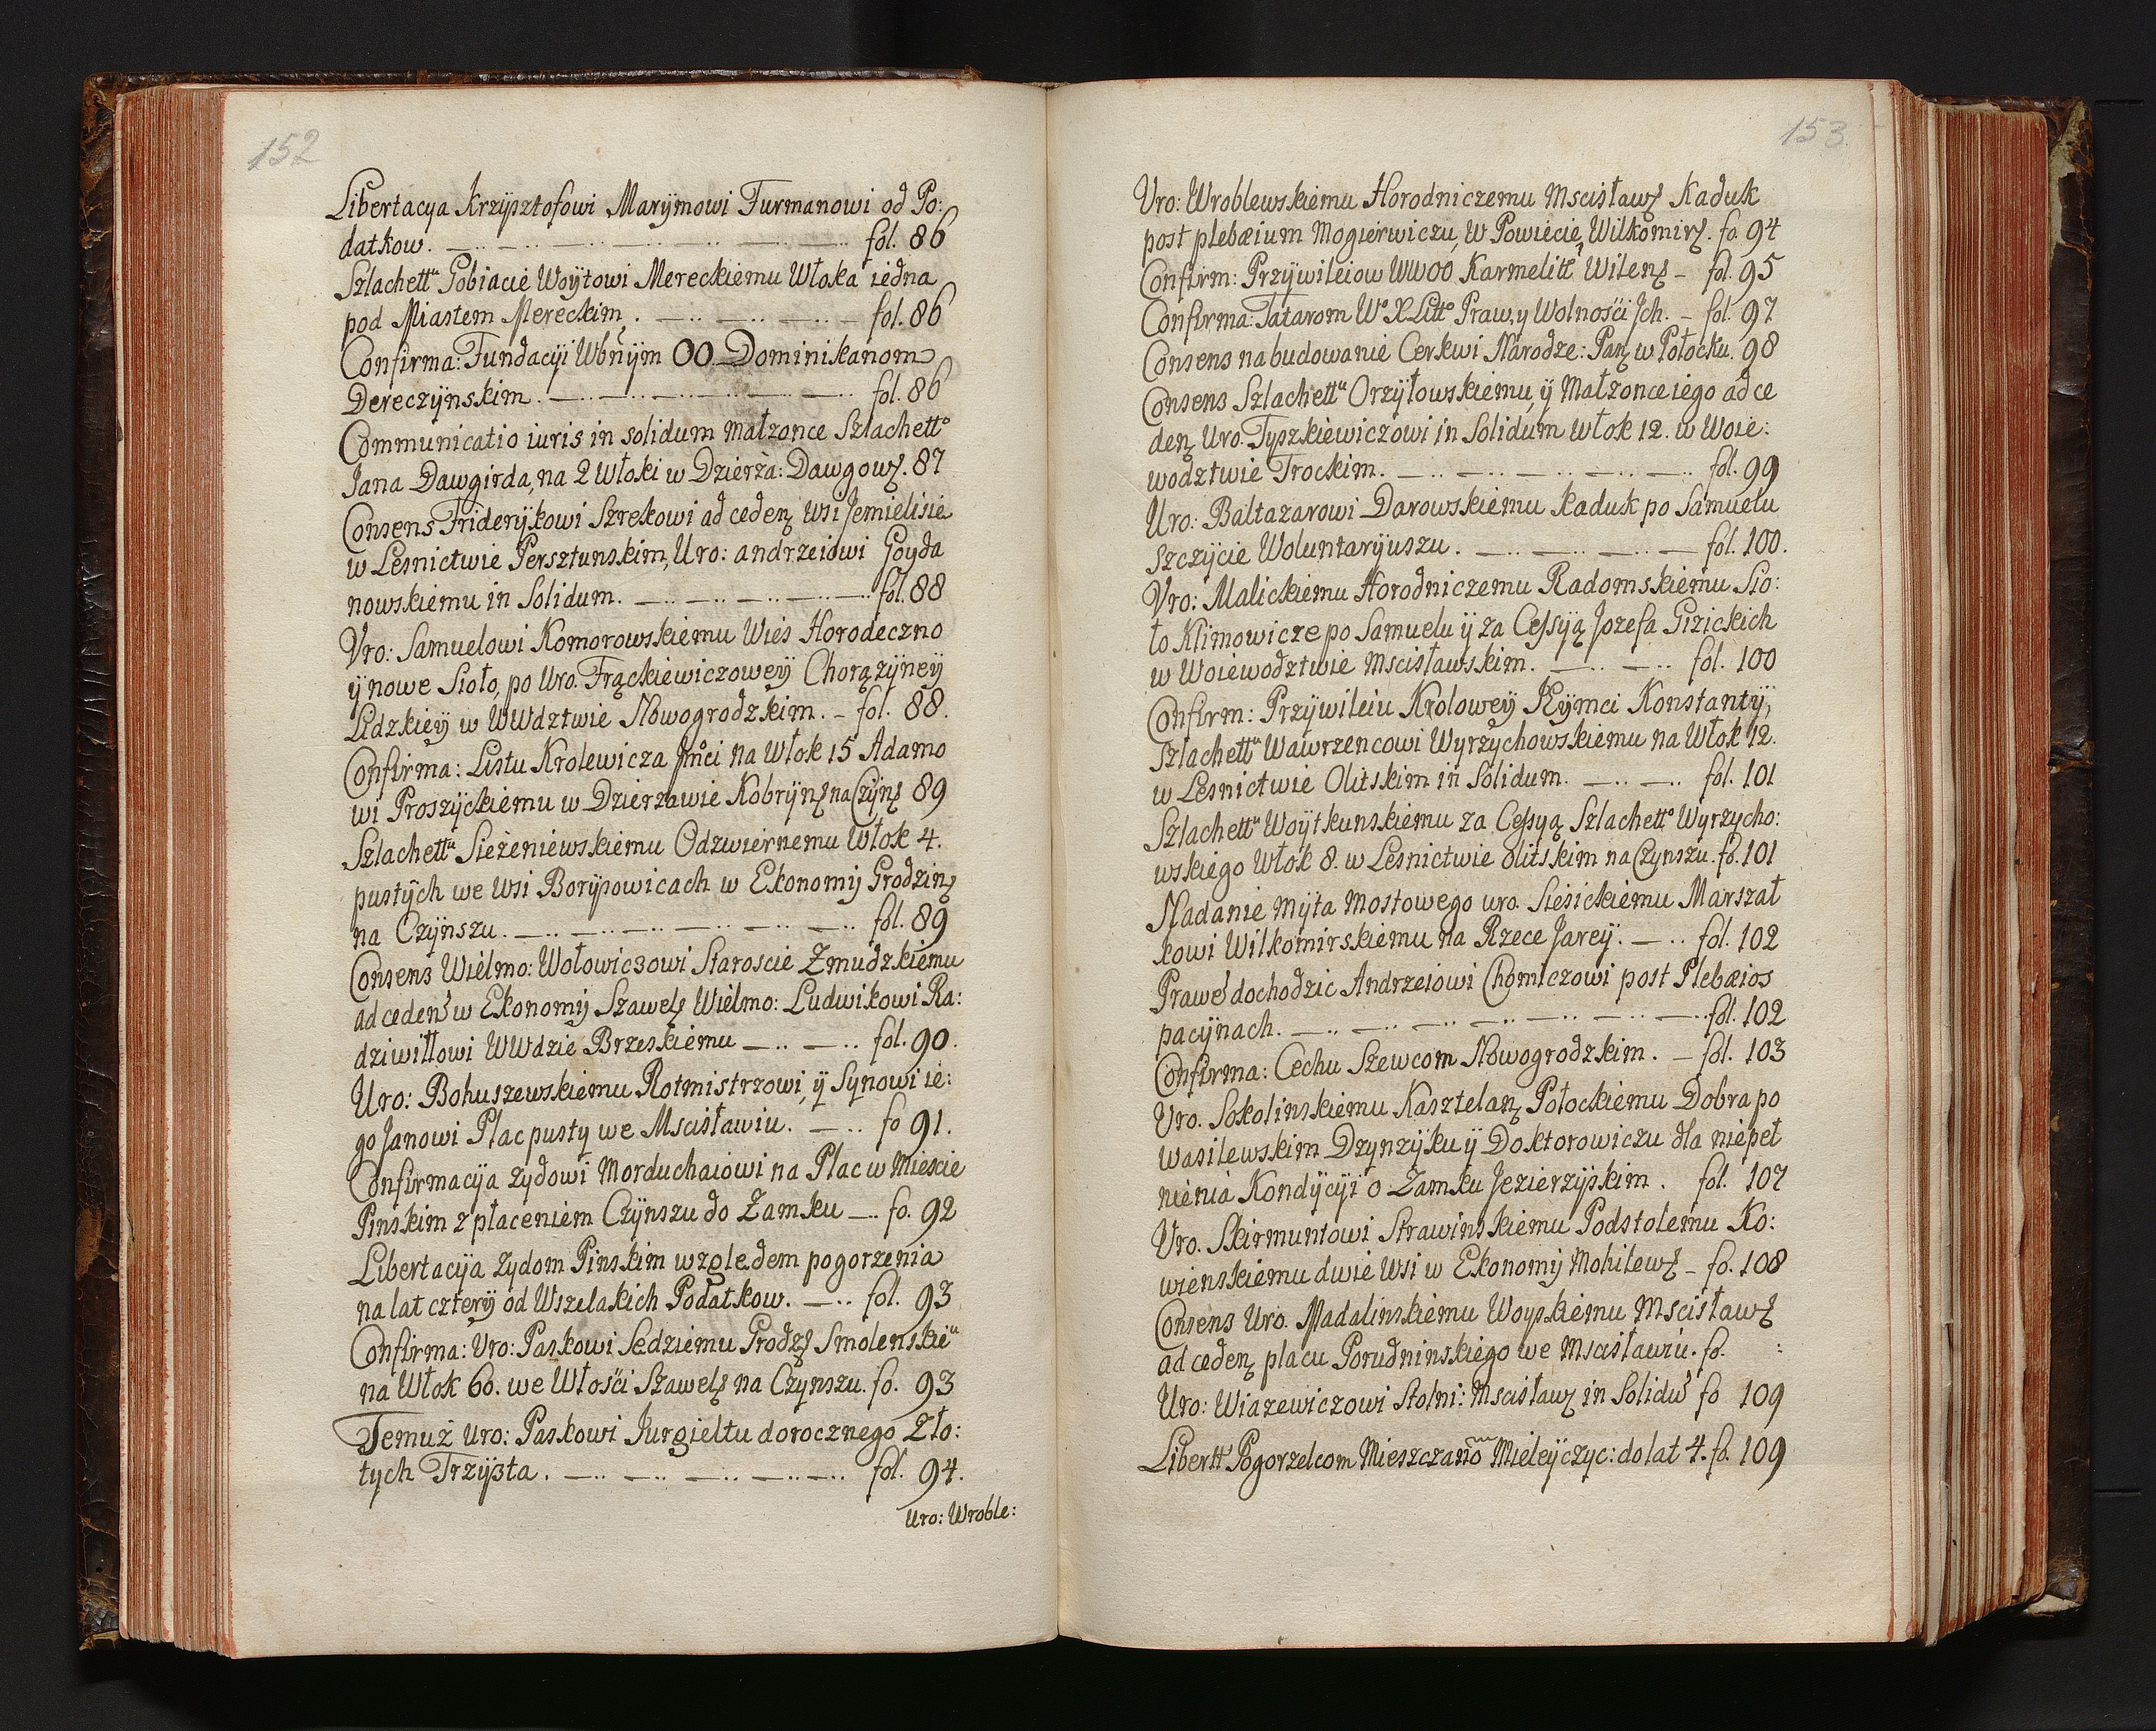 152
Libertacya Krzysztofowi Marÿmowi Furmanowi od Po:
datkow. fol. 86
Szlachett<sup>u</sup> Gobiacie Woÿtowi Mereckiemu Włoka iedna
pod Miastem Mereckim. fol. 86
Confirma: Fundacÿi Wbnÿm OO. Dominikanom
Dereczÿnskim. fol. 86
Communicatio iuris in solidum małzonce Szlachett<sup>o</sup>
Jana Dawgirda, na 2 Włoki w Dzierża: Dawgow. 87
Consens Friderÿkowi Szrekowi ad ceden wsi Jemielisie
w Lesnictwie Persztunskim, Uro: andrzeiowi Goyda
nowskiemu in Solidum. fol. 88
Vro: Samuelowi Komorowskiemu Wieś Horodeczno
ÿ nowe Sioło, po Uro. Frąckiewiczoweÿ Chorązÿneÿ
Lidzkieÿ w WWdztwie Nowogrodzkim. fol. 88.
Confirma: Listu Krolewicza Jmci na Włok 15 Adamo
wi Proszÿckiemu w Dzierzawie Kobrÿn na Czÿn 89
Szlachett<sup>u</sup> Sieżeniewskiemu Odzwiernemu Włok 4.
pustÿch we wsi Borÿsowicach w Ekonomÿ Grodzin
na Czÿnszu. fol. 89
Consens Wielmo: Wołowiczowi Staroscie Zmudzkiemu
ad ceden w Ekonomÿ Szawel Wielmo: Ludwikowi Ra:
dziwiłłowi WWdzie Brzeskiemu fol. 90.
Uro: Bohuszewskiemu Rotmistrzowi, ÿ Synowi ie:
go Janowi Plac pustÿ we Mscisławiu. fo 91.
Confirmacÿa żydowi Morduchaiowi na Plac w Miescie
Pinskim z płaceniem Czÿnszu do Zamku fo. 92
Libertacÿa Zydom Pinskim wzgledem pogorzenia
na lat czterÿ od Wszelakich Podatkow. fol. 93
Confirma: Uro: Paskowi Sedziemu Grodz Smolenskie<sup>u</sup>
na Włok 60. we Włosći Szawel na Czynszu. fo. 93
Temuż Uro: Paskowi Jurgieltu dorocznego Zło:
tych Trzÿsta. fol. 94.
Uro: Wroble:
153
Vro: Wroblewskiemu Horodniczemu Mscisław Kaduk
post plebæium Mogierwiczu, W Powiecie Wilkomir. fo. 94
Confirm: Przÿwileiow WWOO Karmelitt Wilen fol. 95
Confirma: Tatarom W<sup>o</sup> X Litt<sup>o</sup> Praw, y Wolnosći Jch. fol. 97
Consens na budowanie Cerkwi Narodze: Pan w Połocku. 98
Consens Szlachett<sup>u</sup> Orzÿłowskiemu, ÿ Małzonce iego ad ce
den Uro. Tyszkiewiczowi in Solidum włok 12. w Woie:
wodztwie Trockim. fol. 99
Uro: Baltazarowi Darowskiemu kaduk po Samuelu
Szczÿcie Woluntarÿuszu. fol. 100.
Vro: Malickiemu Horodniczemu Radomskiemu Sio:
ło Klimowicze po Samuelu ÿ za Cessÿą Jozefa Gizickich
w Woiewodztwie Mscisławskim. fol. 100
Confirm: Przÿwileiu Kroloweÿ Jeÿmci Konstantÿ,
Szlachett<sup>u</sup> Wawrzencowi Wyrzÿchowskiemu na Włok 12.
w Lesnictwie Olitskim in Solidum. fol. 101
Szlachett<sup>u</sup> Woÿtkunskiemu za Cessyą Szlachett<sup>o</sup> Wyrzycho:
wskiego Włok 8. w Lesnictwie Olitskim na Czynszu. fo. 101
Nadanie Mÿta Mostowego uro. Siesickiemu Marszał
kowi Wilkomirskiemu na Rzece Jareÿ. fol. 102
Prawe dochodzic Andrzeiowi Chomiczowi post Plebæios
pacÿnach. fol. 102
Confirma: Cechu Szewcom Nowogrodzkim. fol. 103
Uro. Sokolinskiemu Kasztelan Połockiemu Dobra po
Wasilewskim Dzynzÿku ÿ Doktorowiczu dla niepeł
nienia Kondÿcÿi o Zamku Jezierzÿskim. fol. 107
Vro. Skirmuntowi Strawinskiemu Podstolemu Ko:
wienskiemu dwie Wsi w Ekonomÿ Mohilew fo. 108
Consens Uro. Madalinskiemu Woyskiemu Mscisław
ad ceden placu Porudninskiego we Mscisławiu. fo. :
Uro: Wiazewiczowi Stolni: Mscisław in Solidu fo 109
Libertt Pogorzelcom Mieszczano<sup>m</sup> Mieleÿczyc: do lat 4. fo. 109